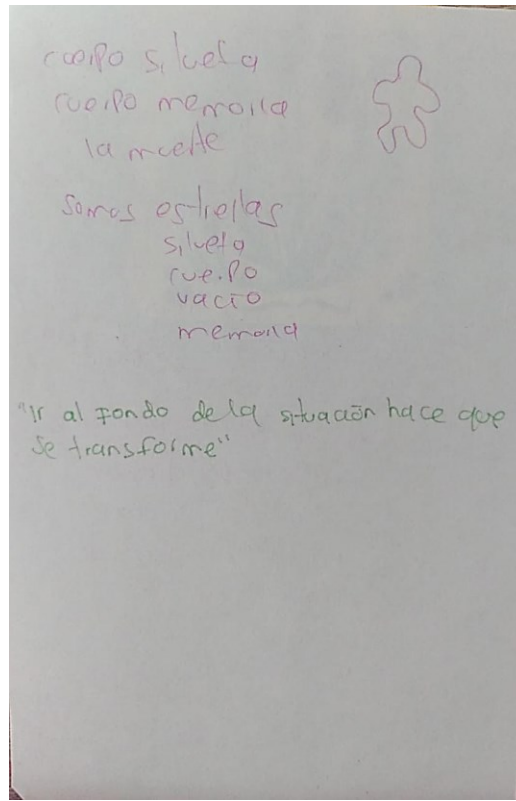 cuerpo silueta
cuerpo memoria
la muerte
somos estrellas
silueta
cuerpo
vacío
memoria
"Ir al fondo de la situación hace que
se transforme"